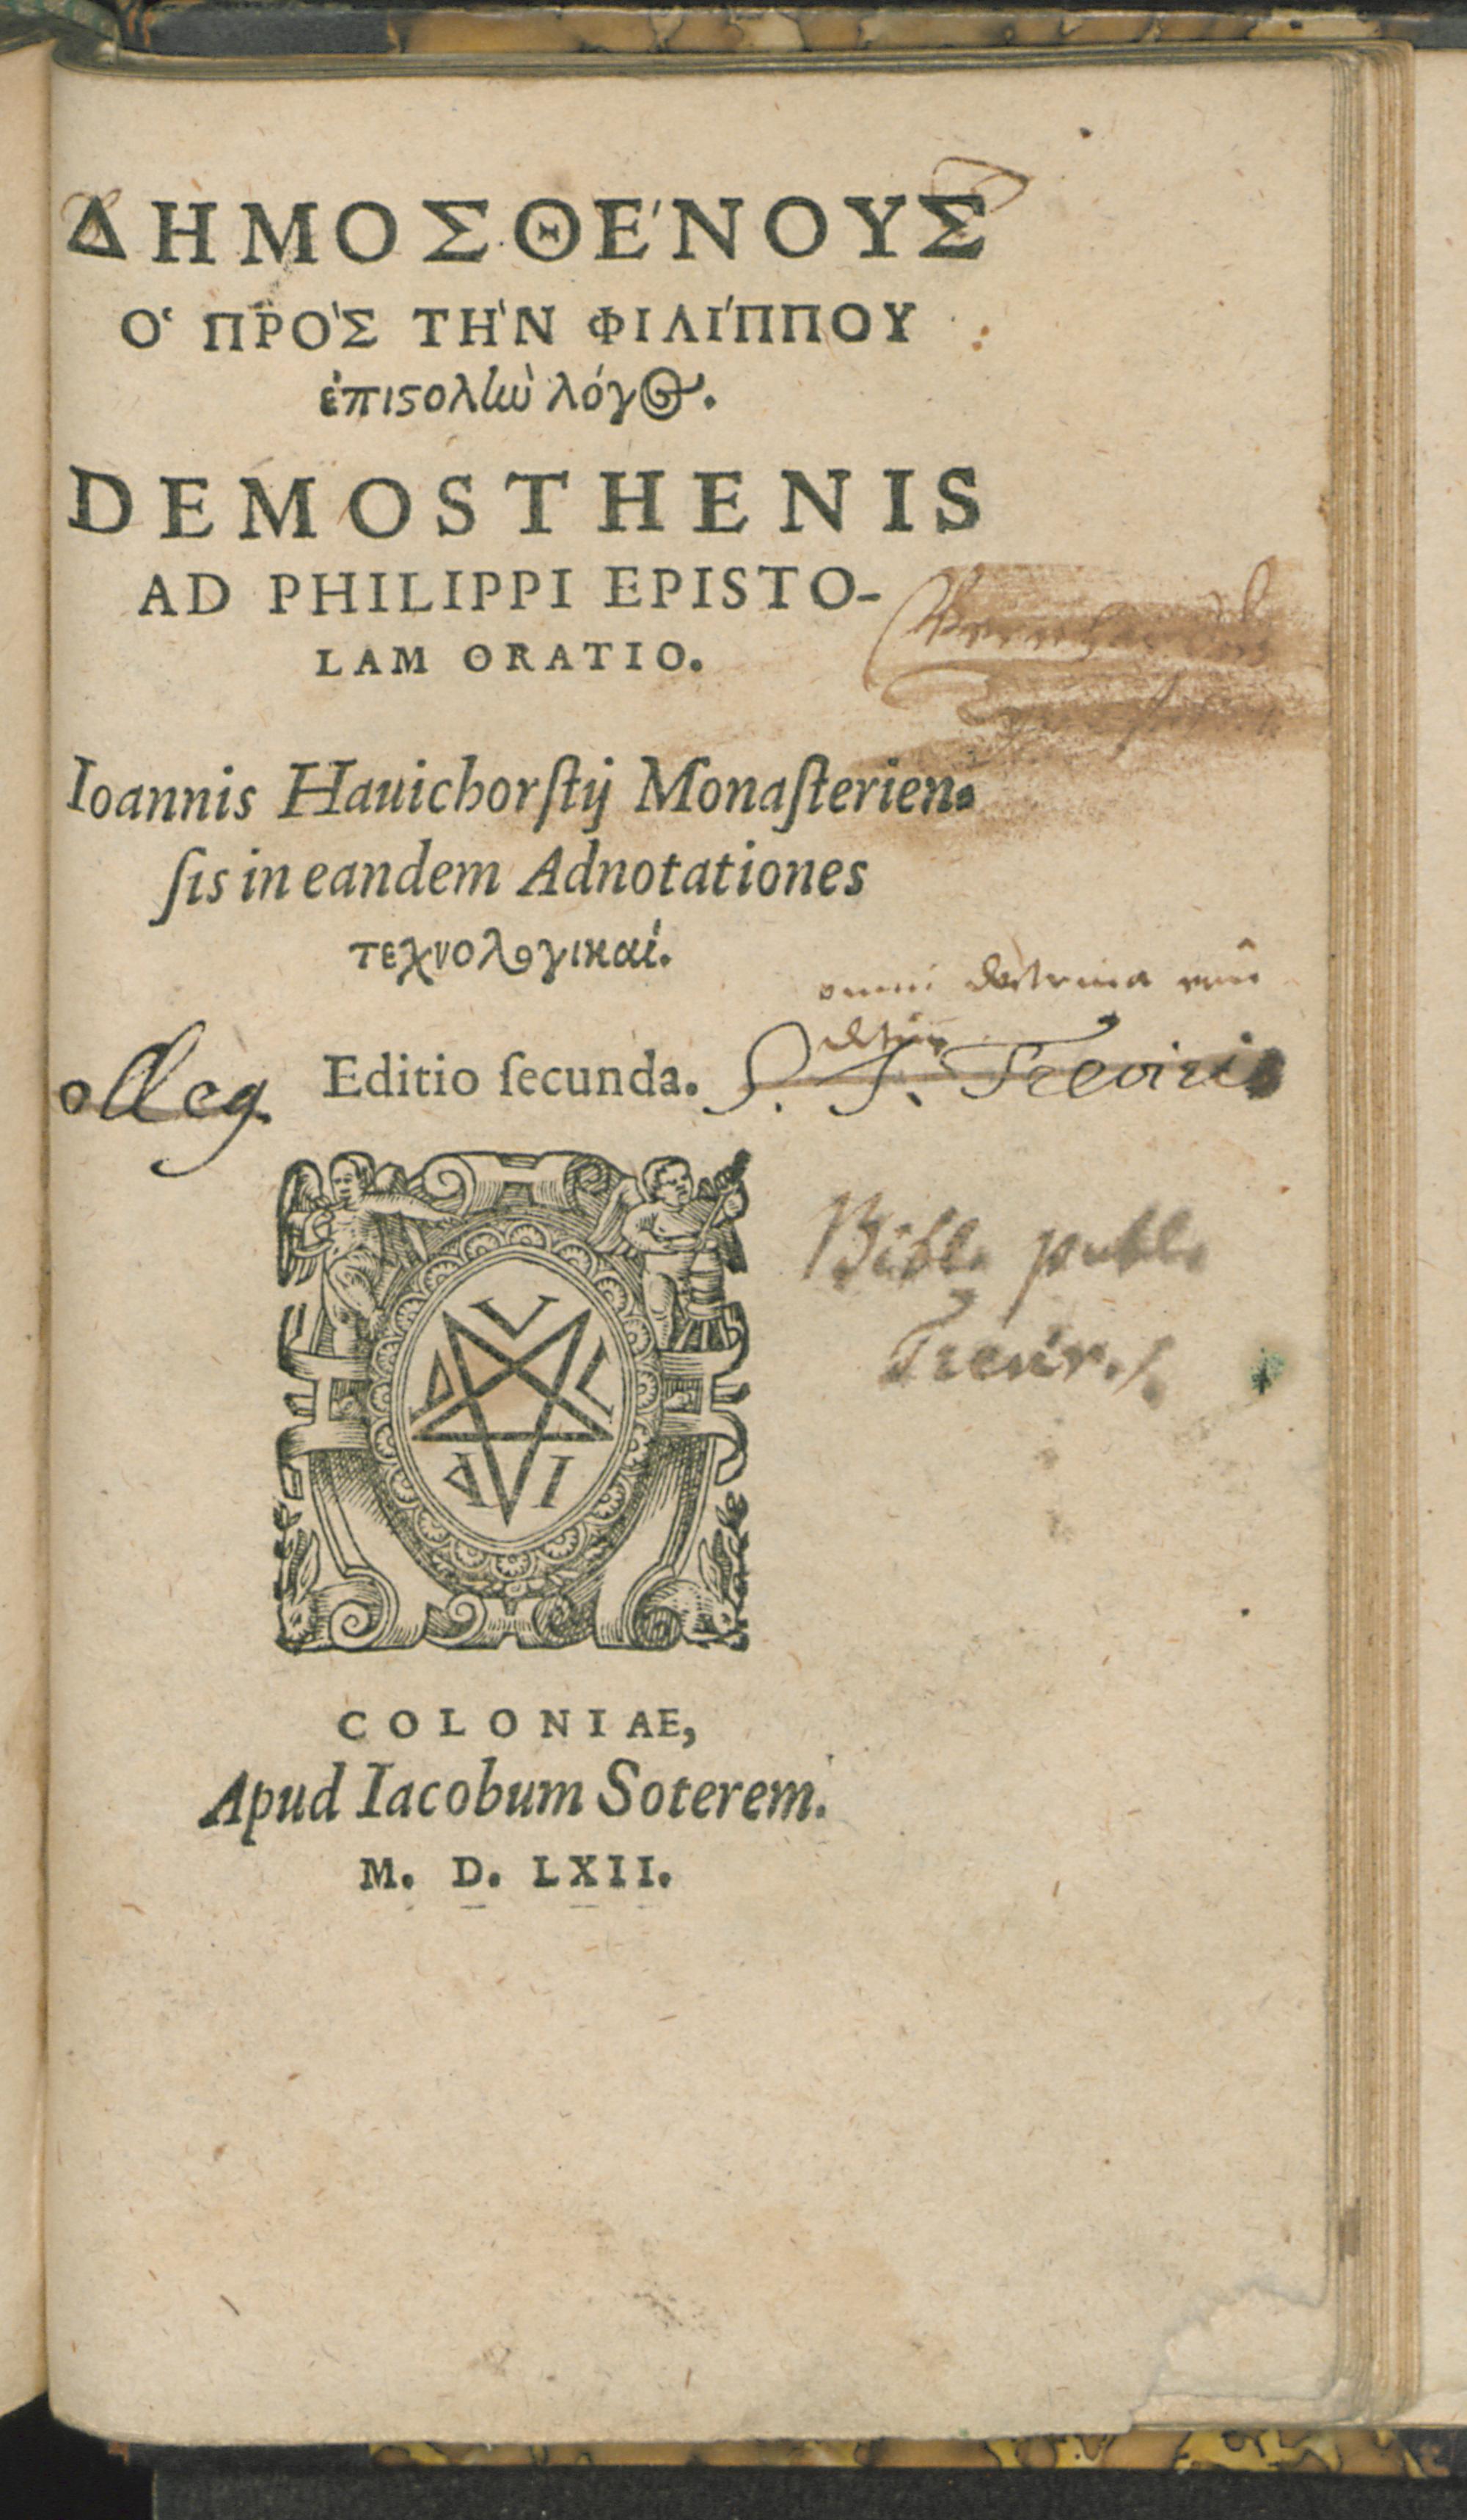 ΔΗΜΟΣΘΕ'ΝΟΥΣ
Ο‛ ΠΡΟ'Σ ΤΗ'Ν ΦΙΛΙ'ΠΠΟΥ
ἐπιϛολὴν λόγος.
DEMOSTHENIS
AD PHILIPPI EPISTO-
LAM ORATIO.
Ioannis Hauichorſtij Monaſterien-
ſis in eandem Adnotationes
τεχνολογικαί.
omni doctrina
olleg. Editio ſecunda. S. J. Treviris
V
Bibl. publ.
Trevir.
COLONIAE,
Apud Iacobum Soterem.
M. D. LXII.